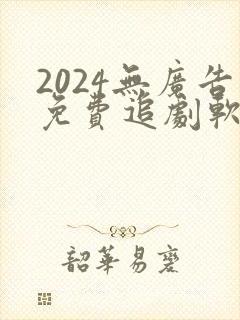 2024無廣告
免費追劇軟
韶華易老